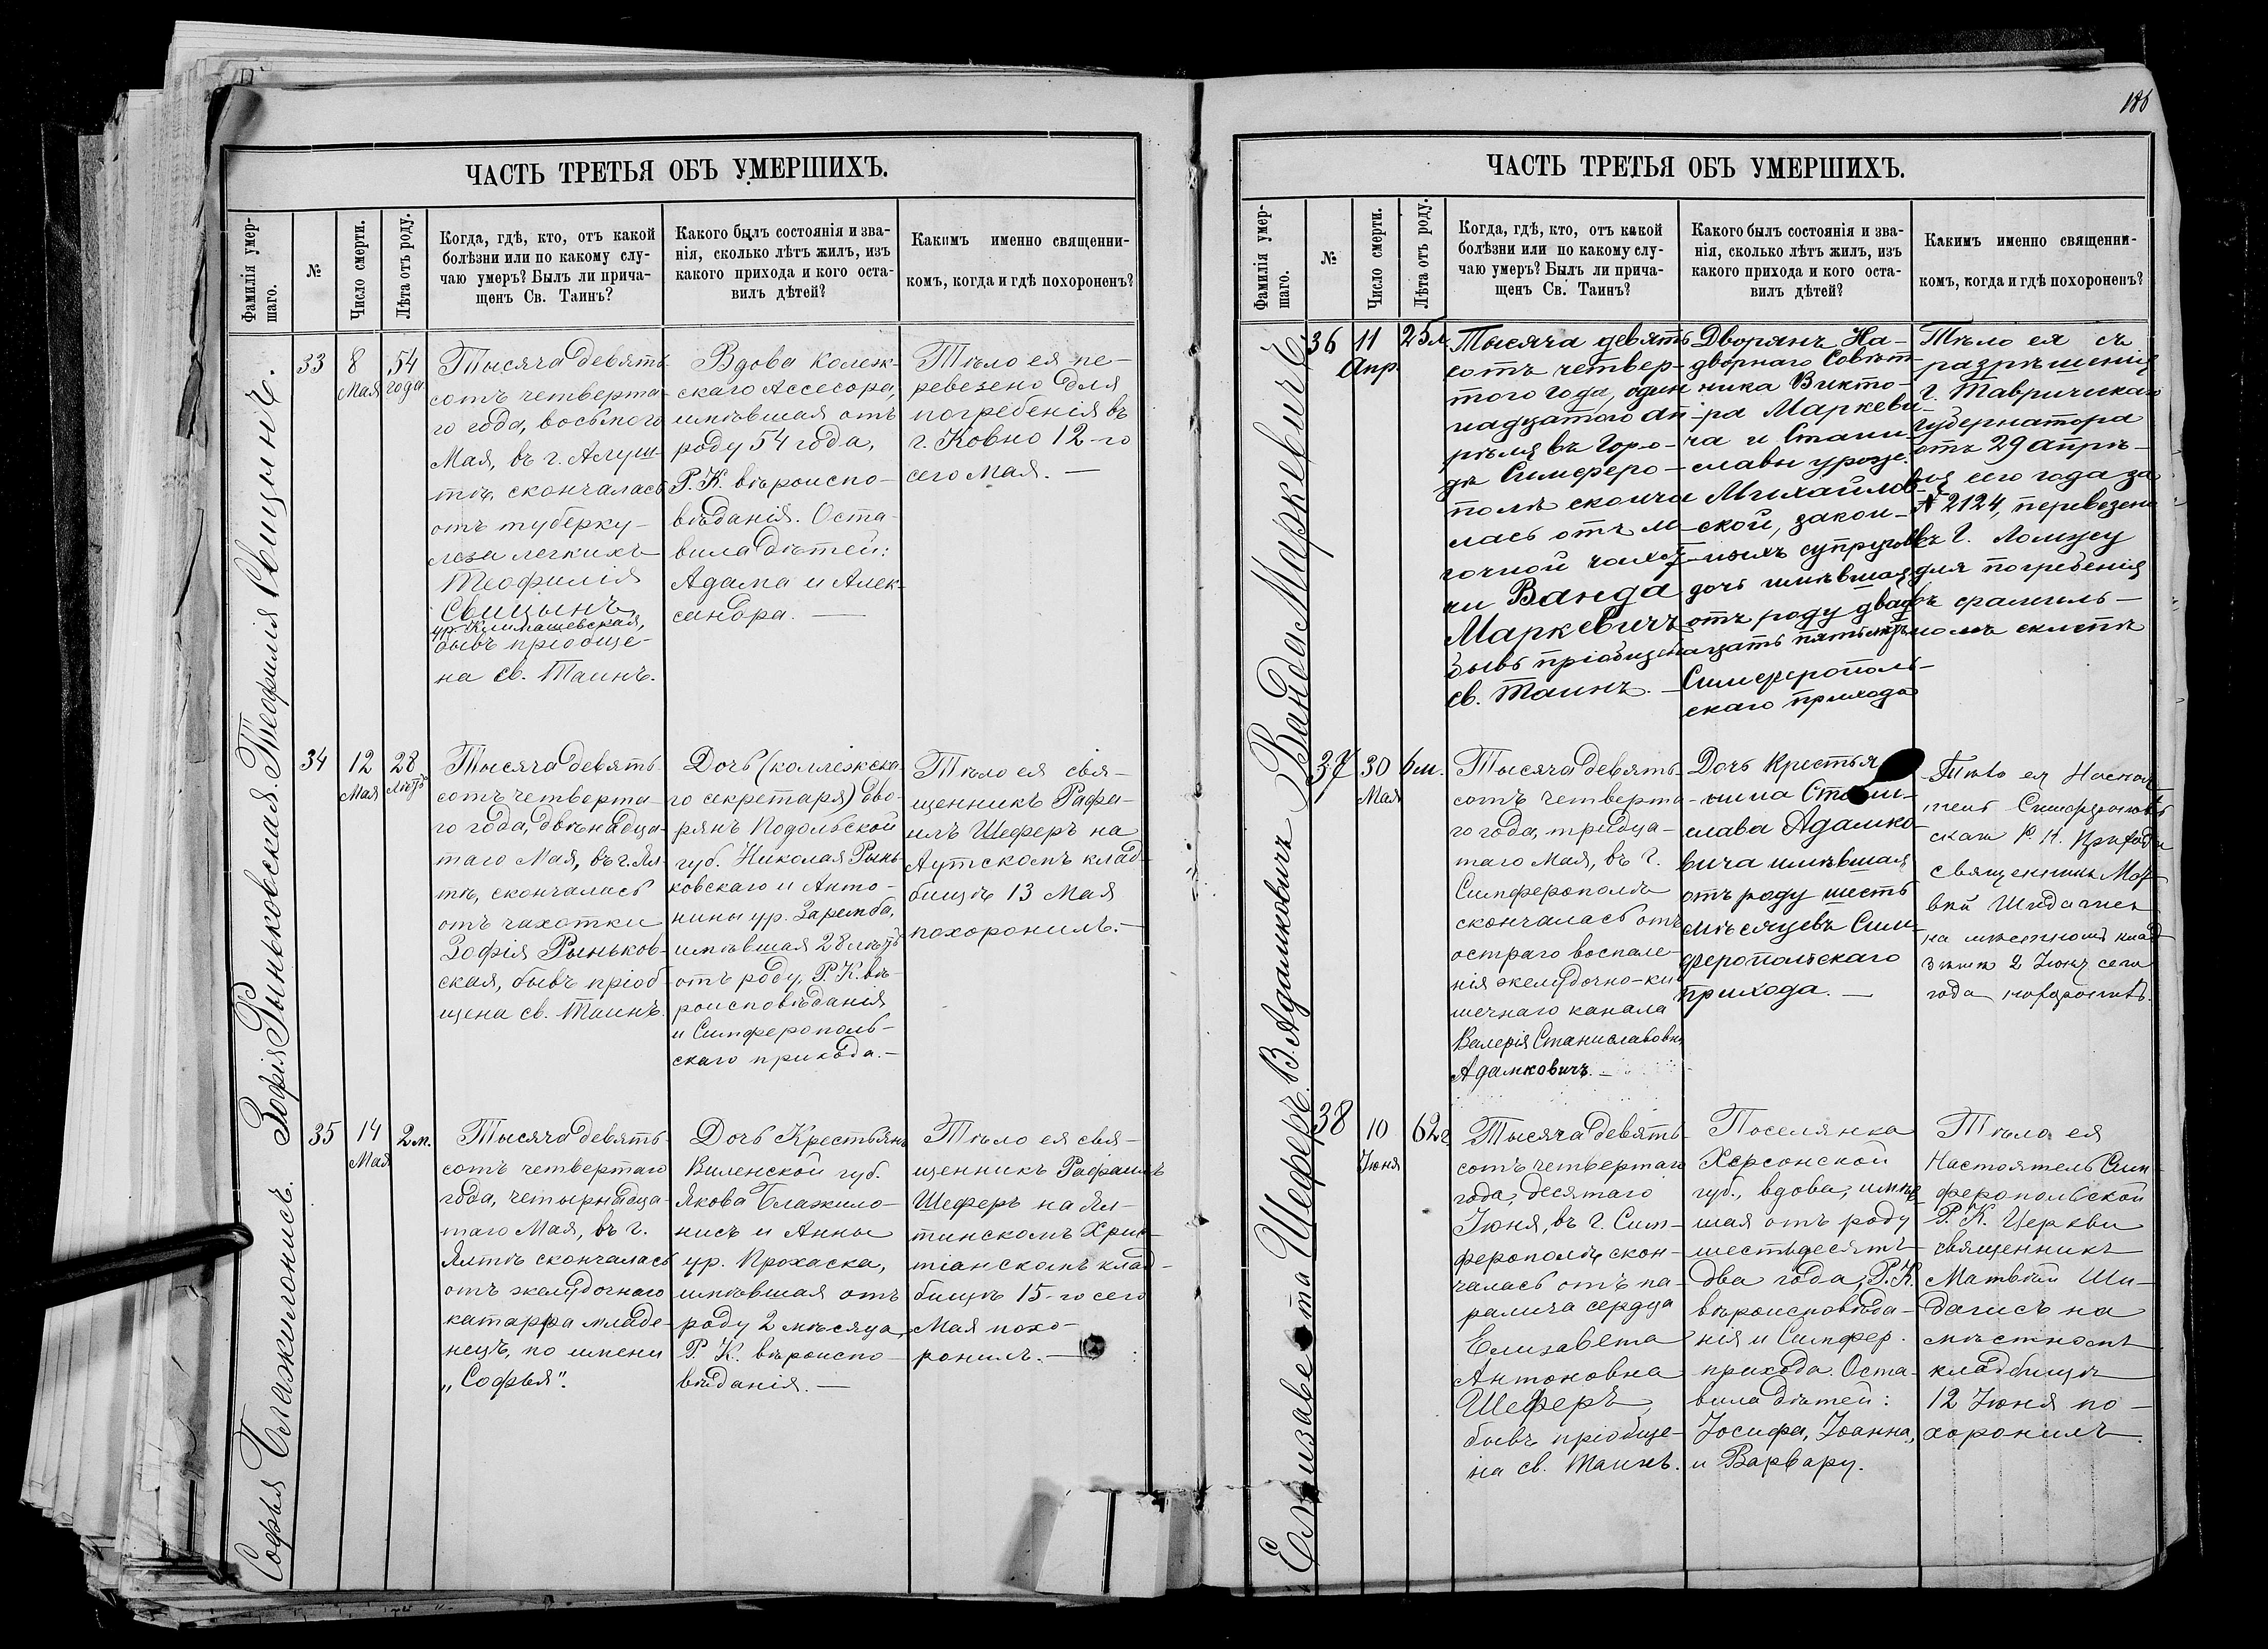 ЧАСТЬ ТРЕТЬЯ ОБЪ УМЕРШИХЪ.
Фамилія умер-
шаго.
№
Число смерти.
Лѣта отъ роду.
Когда, гдѣ, кто, отъ какой
болѣзни или по какому слу-
чаю умеръ? Былъ ли прича-
щенъ Св. Таинъ?
Какого былъ состоянія и зва-
нія, сколько лѣтъ жилъ, изъ
какого прихода и кого оста-
вилъ дѣтей?
Какимъ именно священни-
комъ, когда и гдѣ похороненъ?
Теофилія Свицынъ.
33
8
Мая
54
года
Тысяча девять-
сотъ четверта-
го года, восьмого
Мая, въ г. Алуш-
тѣ, скончалась
отъ туберку-
леза легкихъ
Теофилія
Свицынъ,
ур. Климашевская,
бывъ пріобще-
на св. Таинъ.
Вдова колеж-
скаго Ассесора,
имѣвшая отъ
роду 54 года,
Р. К. вѣроиспо-
вѣданія. Оста-
вила дѣтей:
Адама и Алек-
сандра. —
Тѣло ея пе-
ревезено для
погребенія въ
г. Ковно 12-го
сего Мая. —
Зофія Рыньковская.
34
12
Мая
28
лѣтъ
Тысяча девять-
сотъ четверта-
го года, двѣнадца-
таго Мая, въ г. Ял-
тѣ, скончалась
отъ чахотки
Зофія Рыньков-
ская, бывъ пріоб-
щена св. Таинъ.
Дочь (коллежска-
го секретаря) дво-
рянъ Подольской
губ. Николая Рынь-
ковскаго и Анто-
нины ур. Заремба,
имѣвшая 28 лѣтъ
отъ роду, Р. К. вѣ-
роисповѣданія
и Симферополь-
скаго прихода. —
Тѣло ея свя-
щенникъ Рафа-
илъ Шеферъ на
Аутскомъ клад-
бищѣ 13 Мая
похоронилъ. —
Софья Блажилонисъ.
35
14
Мая
2 м.
Тысяча девять-
сотъ четвертаго
года, четырнадца-
таго Мая, въ г.
Ялтѣ скончалась
отъ желудочнаго
катарра младе-
нецъ, по имени
„Софья".
Дочь Крестьянъ
Виленской губ.
Якова Блажило-
нисъ и Анны
ур. Прохаска,
имѣвшая отъ
роду 2 мѣсяца,
Р. К. вѣроиспо-
вѣданія. —
Тѣло ея свя-
щенникъ Рафаилъ
Шеферъ на Ял-
тинскомъ Хрис-
тіанскомъ клад-
бищѣ 15-го сего
Мая похо-
ронилъ. —
186
ЧАСТЬ ТРЕТЬЯ ОБЪ УМЕРШИХЪ.
Фамилія умер-
шаго.
№
Число смерти.
Лѣта отъ роду.
Когда, гдѣ, кто, отъ какой
болѣзни или по какому слу-
чаю умеръ? Былъ ли прича-
щенъ Св. Таинъ?
Какого былъ состоянія и зва-
нія, сколько лѣтъ жилъ, изъ
какого прихода и кого оста-
вилъ дѣтей?
Какимъ именно священни-
комъ, когда и гдѣ похороненъ?
Ванда Маркевичъ
36
11
Апр.
25 л.
Тысяча девять-
сотъ четвер-
того года, один-
надцатого Ап-
рѣля въ Горо-
дѣ Симферо-
полѣ сконча-
лась отъ ле-
гочной чахот-
ки Ванда
Маркевичъ
бывъ пріобщена
св. Таинъ. —
Дворянъ На-
дворнаго Совѣт-
ника Викто-
ра Маркеви-
ча и Стани-
славы урожд.
Михайлов-
ской, закон-
ныхъ супруговъ
дочь имѣвшая
отъ роду двад-
цать пять лѣтъ
Симферополь-
скаго прихода
Тѣло ея съ
разрѣшенія
г. Таврическаго
Губернатора
отъ 29 Апрѣ-
ля сего года за
№ 2124, перевезено
въ г. Ломжу
для погребенія
въ фамиль-
номъ склепѣ
В. Адамковичъ
37
30
Мая
6 м.
Тысяча девять-
сотъ четверта-
го года, тридца-
таго Мая, въ г.
Симферополѣ
скончалась отъ
остраго воспале-
нія желудочно-ки-
шечнаго канала
Валерія Станиславовна
Адамковичъ. —
Дочь Крестья-
нина Стани-
слава Адамко-
вича имѣвшая
отъ роду шесть
мѣсяцевъ Сим-
феропольскаго
прихода. —
Тѣло ея Настоя-
тель Симферополь-
скаго Р. К. Прихода
священникъ Мат-
вѣй Шидагисъ
на мѣстномъ клад-
2 Іюня сего
года похоронилъ.
Елизавета Шеферъ.
38
10
Іюня
62 г.
Тысяча девять-
сотъ четвертаго
года, десятаго
Іюня, въ г. Сим-
ферополѣ скон-
чалась отъ па-
ралича сердца
Елизавета
Антоновна
Шеферъ,
бывъ пріобще-
на св. Таинъ.
Поселянка
Херсонской
губ., вдова, имѣв-
шая отъ роду
шестьдесятъ
два года, Р. К.
вѣроисповѣда-
нія и Симфер.
прихода. Оста-
вила дѣтей:
Іосифа, Іоанна,
и Варвару.
Тѣло ея
Настоятель Сим-
феропольской
Р. К. Церкви
священникъ
Матвѣй Ши-
дагисъ на
мѣстномъ
кладбищѣ
12 Іюня по-
хоронилъ.